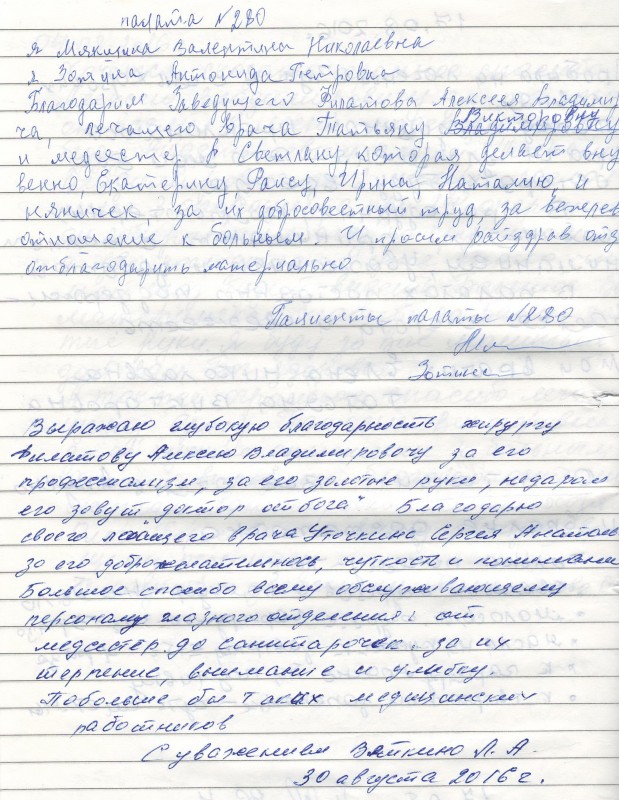 палата №280
я Мякишка Валентина Николаевна
я Зотина Антонида Петровна
Благодарим Заведущего Филатова Алексея Владимир
ча, лечащего врача Татьяну Викторовну
и медсестер Светлану, которая делает вну
венно, Екатерину, Раису, Ирина, Наталию, и
нянiček за их добросовестный труд, за вежлев
отношение к больным. И просим райздрав отд
отблагодарить материально
Пациенты палаты №280
Зотина
Выражаю глубокую благодарность хирургу
Филатову Алексею Владимировочу за его
професионализм, за его золотые руки, недаром
его зовут доктор от бога" Благодарю
своего лечащего врача Уточкина Сергея Анатол
за его доброжелательнось, чуткость и понимани
Большое спасибо всему обслуживающему
персоналу глазного отделения: от
медсестер до санитарочек, за их
терпение, внимание и улыбку
Побольше бы таких медицинских
работников
С уважением Вяткино Л. А.
30 августа 2016 г.